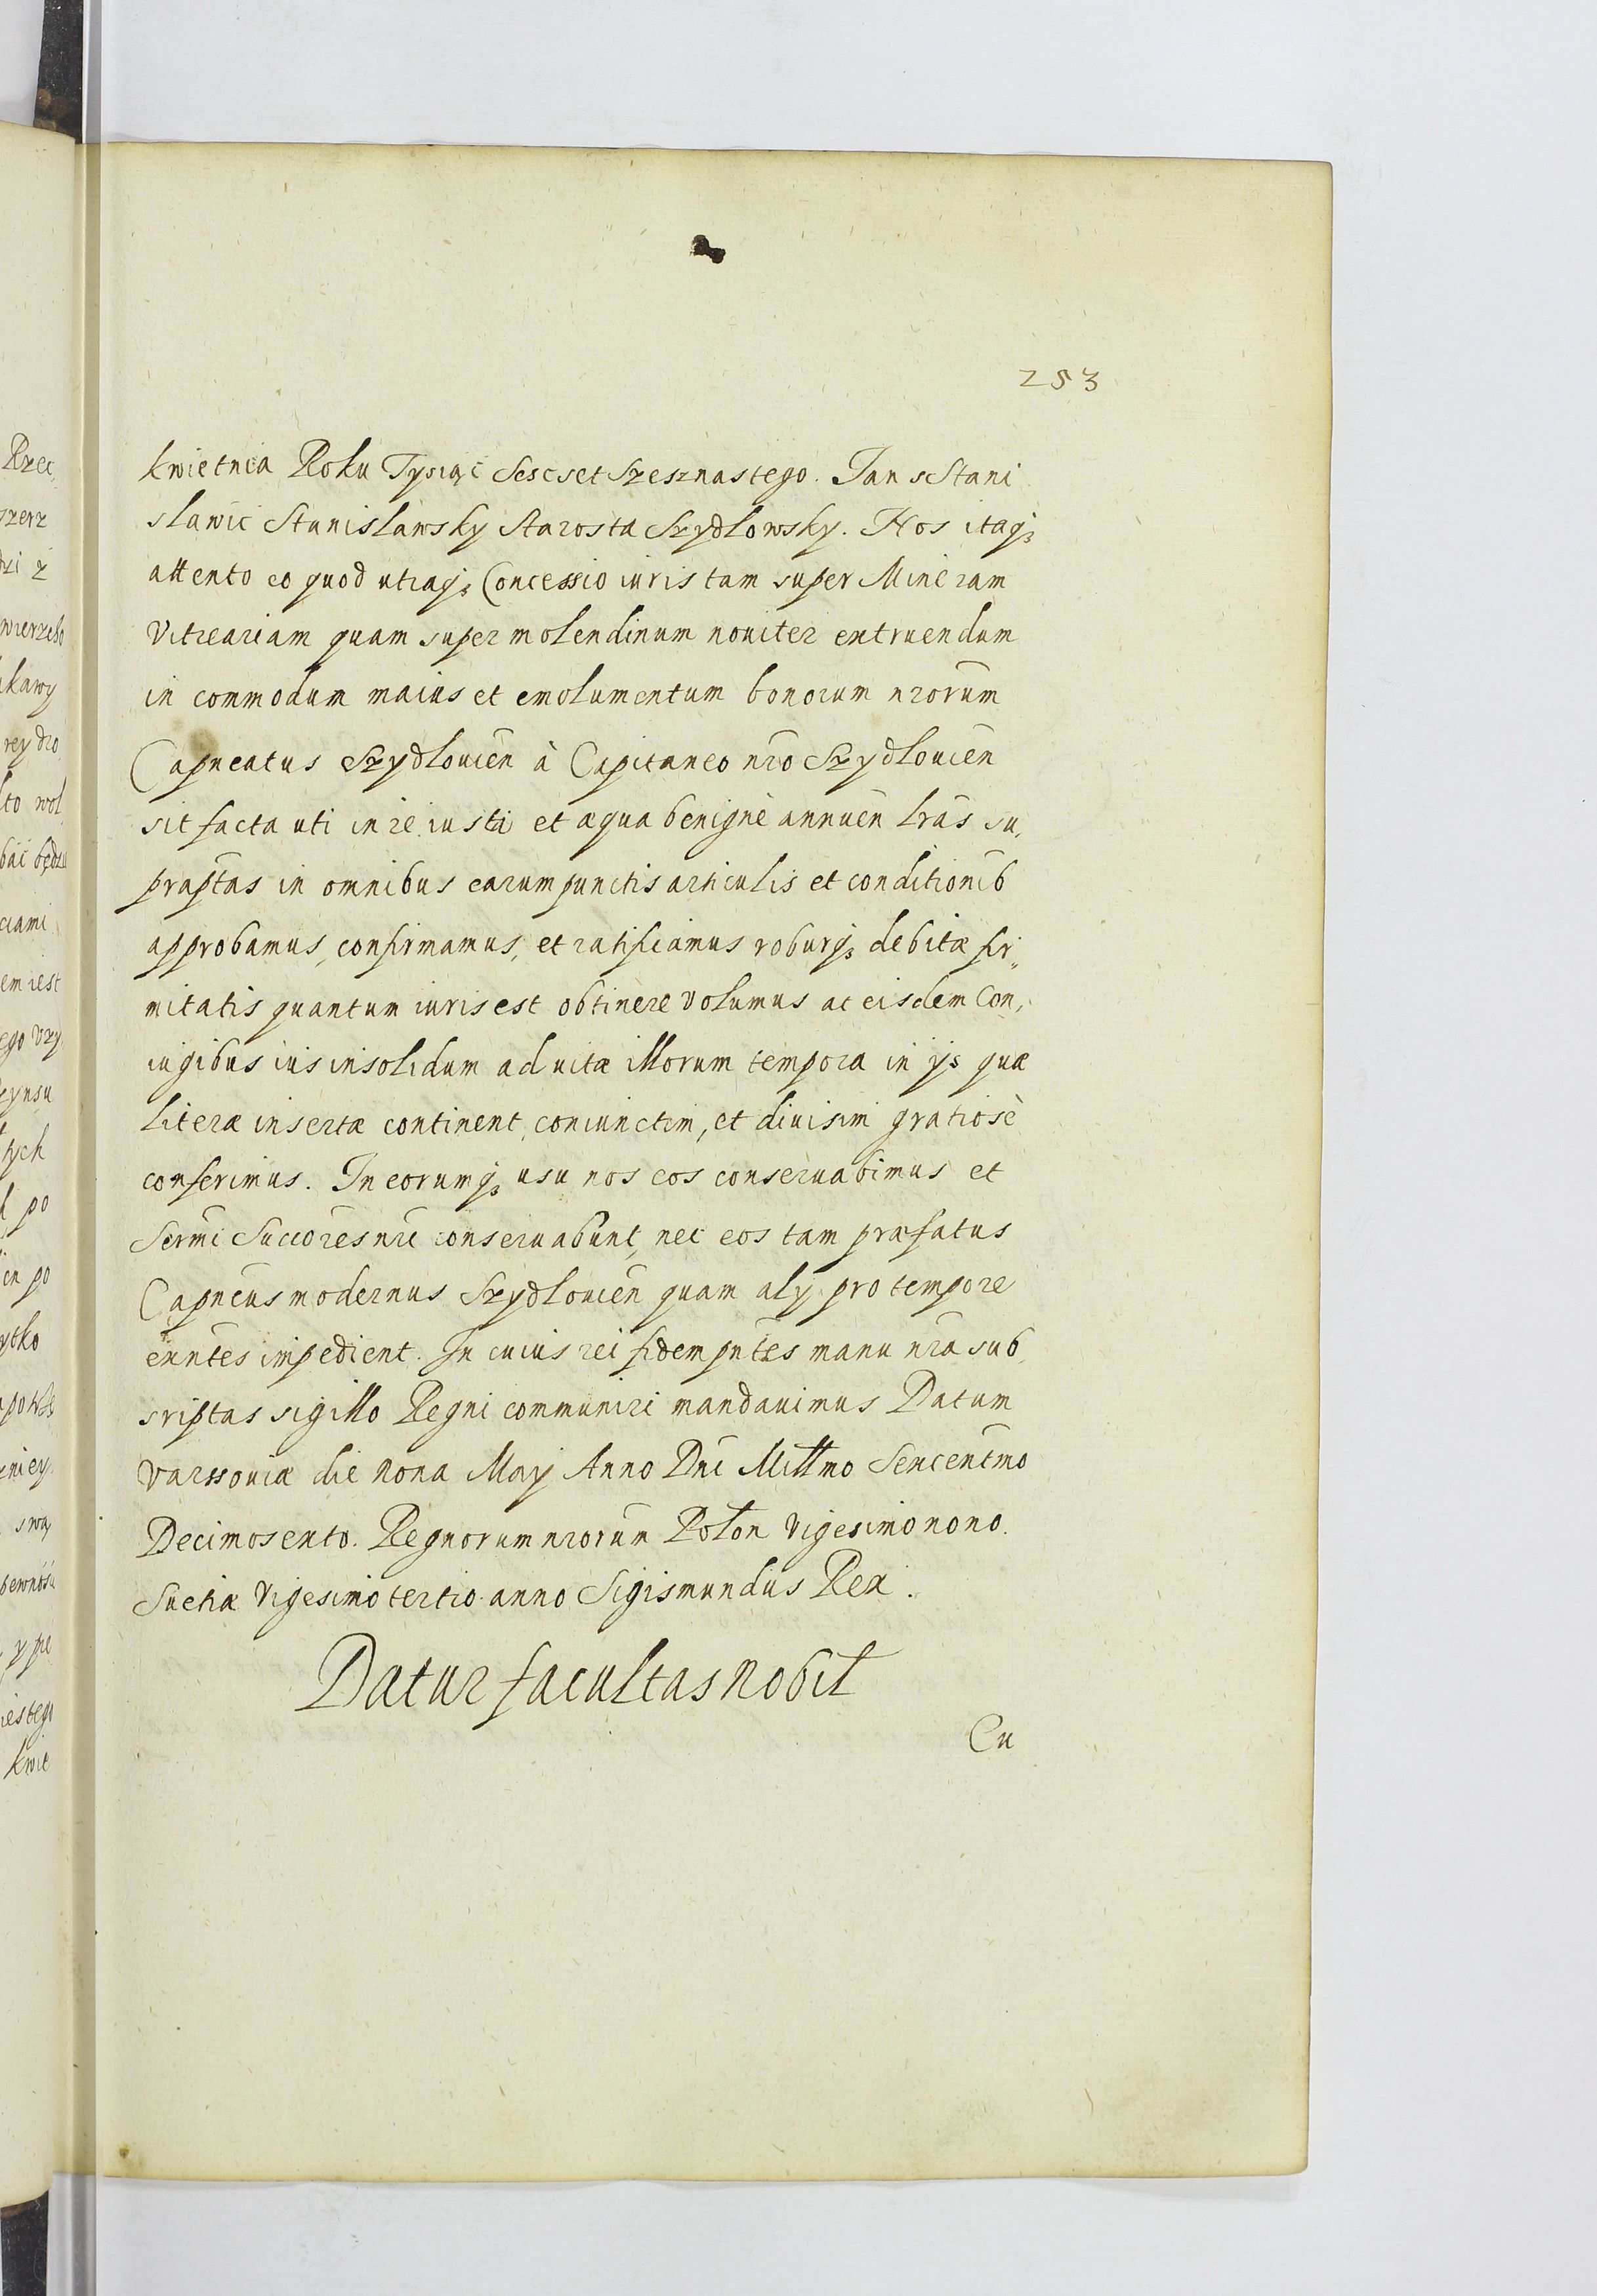 253
kwietnia Roku Tysiąc Sescset Szesznastego. Jan s Stani
sławic Stanisławsky Starosta Szydłowsky. Nos itaq;
attento eo quod utraq; Concessio iuris tam super Mineram
Vitreariam quam super molendinum noviter extruendum
in commodum maius et emolumentum bonorum nrorum
Capneatus Szydlovien à Capitaneo nro Szydlovien
sit facta uti in re iusta et æqua benignè annuen lras su,
praptas in omnibus earum punctis articulis et conditionib
approbamus, confirmamus, et ratificamus roburq; debitæ fir„
mitatis quantum iuris est obtinere volumus ac eisdem Con,
iugibus ius insolidum ad vitæ illorum tempora in ijs quæ
literæ insertæ continent, coniunctim, et divisim gratiosè
conferimus. In eorumq; usu nos eos conservabimus et
Sermi Succores nri conservabunt, nec eos tam præfatus
Capneus modernus Szydlovien quam alij pro tempore
exntes impedient. In cuius rei fidem pntes manu nra sub
sriptas sigillo Regni communiri mandavimus Datum
Varssoviæ die nona Maij Anno Dni Millmo Sexcentmo
Decimosexto. Regnorum nrorum Polon vigesimo nono.
Suetiæ Vigesimo tertio anno Sigismundus Rex.
Datur facultas Nobil
Cu
Rzec,
szerz
wierzcho
kawy
rey dro
to wol
bać będzi
ciami
em iest
ego Vrzy
tych
po
en po
ytko
niey
swą
pewnośći
y pe
iestego
kwie